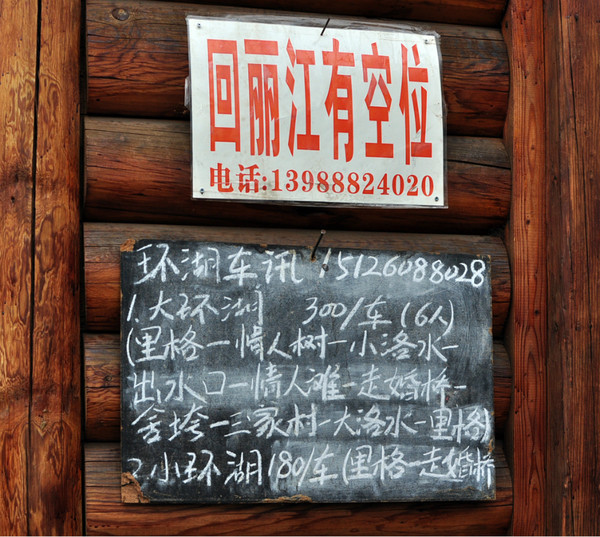 回丽江有空位
电话:13988824020
环湖车讯 15126088028
1.大环湖 300/车(6人)
(里格-情人树-小洛水-
出水口-情人滩-走婚桥-
舍垮-三家村-大洛水-里格)
2.小环湖180/车(里格-走婚桥